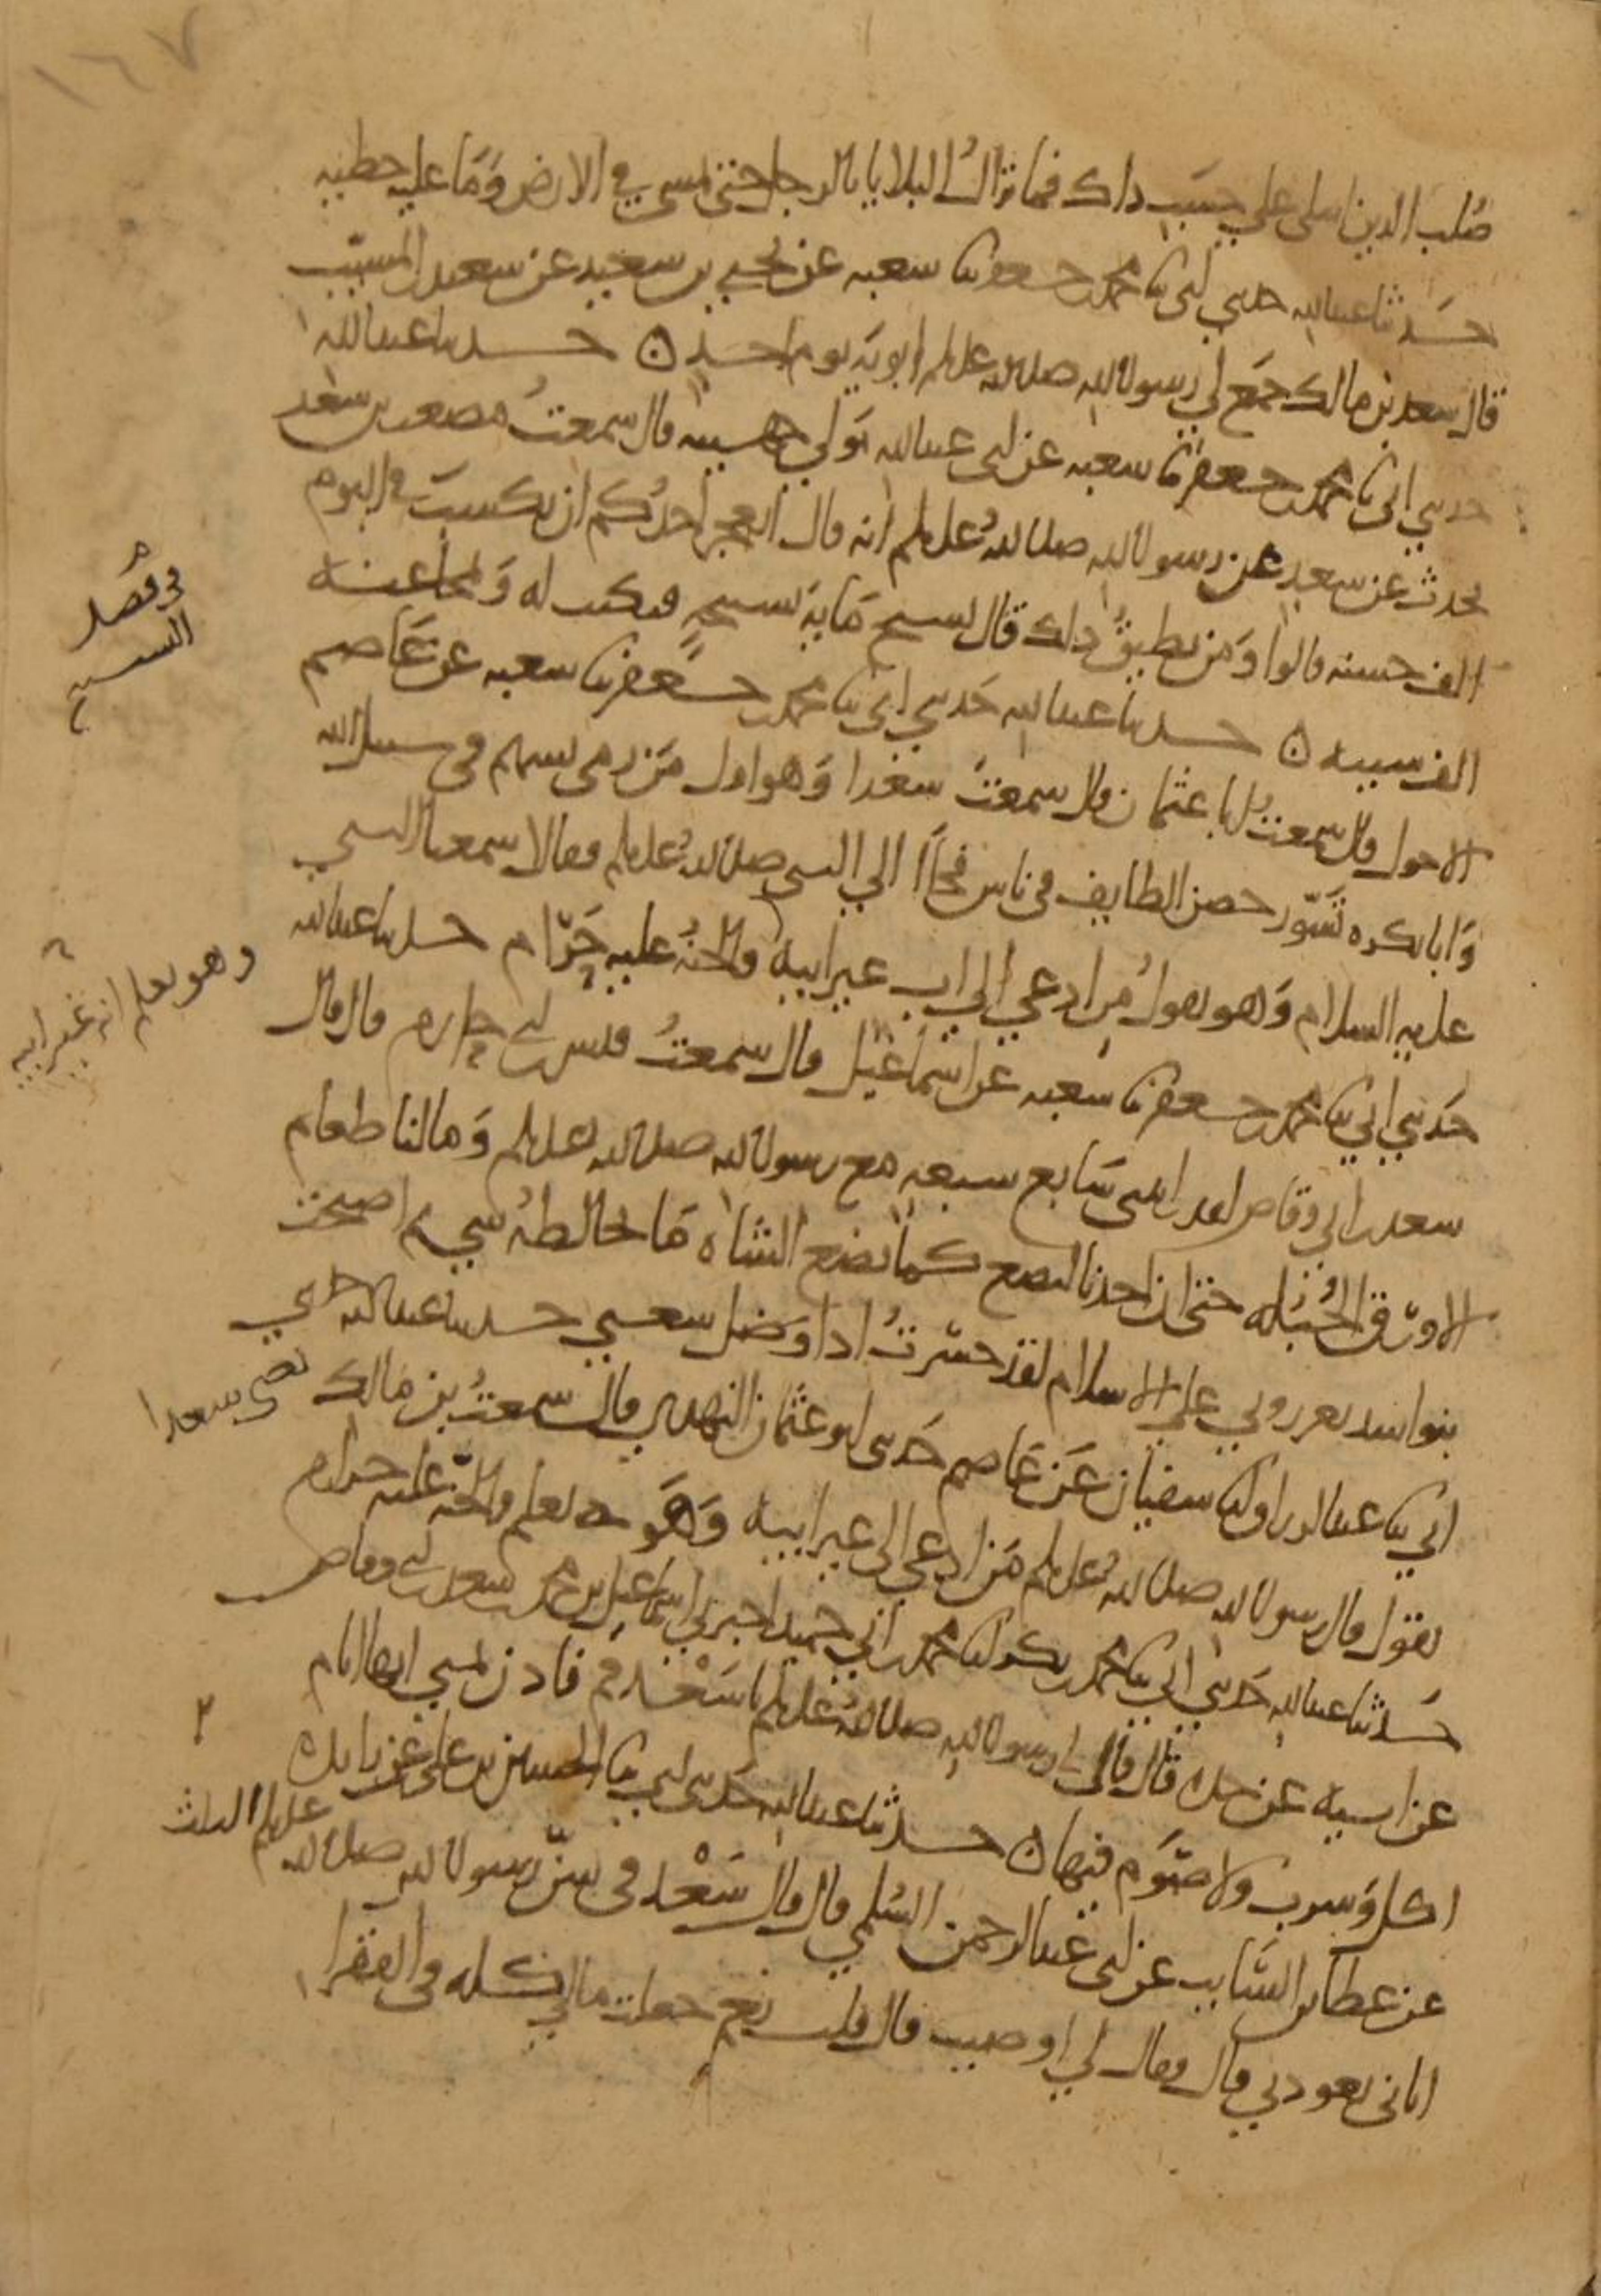 ١٦٧
صُلب الدين ابتلى على حسَب ذاك فما تزالُ البلايا بالرجل حتى يمشي في الارض وَمَا عليه خطيه
حَدثنا عبدالله حدثني ابي ثنا محمد بن جعفر ثنا شعبه عن يحيى بن سعيد عن سعيد بن المسيّب
قال سعد بن مالك جمَع لي رسول الله صلى الله عليه وسلم ابويَه يوم احد ن حدثنا عبدالله
حدثني ابي ثنا محمد بن جعفر ثنا شعبه عن ابي عبدالله مَولي جهينه قال سمعتُ مصعب بن سعد
يحدث عن سعد عن رسول الله صلى الله عليه وسلم انه قال ايعجز احدُكم ان يكسبَ في اليوم
الف حسنه قالوا وَمن يطيقُ ذلك قال يسبح مَايةَ تسبيحه فيكتب له وَيمحا عنه
الف سييه ن حدثنا عبدالله حَدثني ابي ثنا محمد بن جعفر ثنا شعبه عن عَاصم
الاحول قال سمعتُ ابا عثمان قال سمعتُ سعدا وَهو اول مَن رمى بسهم في سبيل الله
وَابا بكره تسَوّر حصن الطايف في ناس فجاَا الي النبي صلى الله عليه وسلم فقالا سمعنا النبي
عليه السلام وَهو يقولُ مِن ادعي الي اب غير ابيه فالجنهُ عليه حَرام حدثنا عبدالله
وهو يعلم انه غير ابيه
حَدثني ابي ثنا محمد بن جعفر ثنا شعبه عن اسماعيل قال سمعتُ قيس بن ابي حازم قال قال
سعد بن ابي وقاص لقد رايتني سَابع سبعه مع رسول الله صلى الله عليه وسلم وَمالنا طعام
الا ورق الحُبُله حتى ان احدنا ليضع كما تضع الشاه مَا يخالطهُ شي ثم اصبحت
بنو اسد يعزروني على الاسلام لقد خسرتُ اذا وَضل سعيي حدثنا عبدالله حدثني
ابي ثنا عبدالرزاق انا سفيان عَن عَاصم حَدثني ابو عثمان النهدي قال سمعتُ بن مالك يعني سعدا
يقول قال رسول الله صلى الله عليه وسلم مَن ادعي الى غير ابيه وَهَو يعلم فالجنه عليه حرام
حَدثنا عبدالله حَدثني ابي ثنا محمد بن بكر انا محمد بن ابي حميد اخبرني اسماعيل بن محمد بن سعد بن ابي وقاص
عن ابيه عن جده قال قال لي رسول الله صلى الله عليه وسلم يا سَعْد قم فاذن بمنى انها ايام
اكل وَشرب ولا صَوم فيها ن حدثنا عبدالله حَدثني ابي ثنا الحسين بن علي عن زايده
عن عطا بن السَّايب عن ابي عبدالرحمن السُلمي قال قال سَعْد في سنّ رسول الله صلى الله عليه وسلم الثلث
اتاني يعودني قال فقال لي اوصيت قال قلت نعم جعلت مالي كله في الفقرا
في فضل
التسبيح